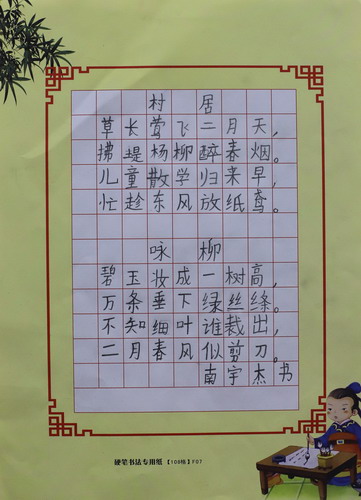 村居
草长莺飞二月天，
拂堤杨柳醉春烟。
儿童散学归来早，
忙趁东风放纸鸢。
咏柳
碧玉妆成一树高，
万条垂下绿丝绦。
不知细叶谁裁出，
二月春风似剪刀。
南宇杰书
硬笔书法专用纸【108格】F07